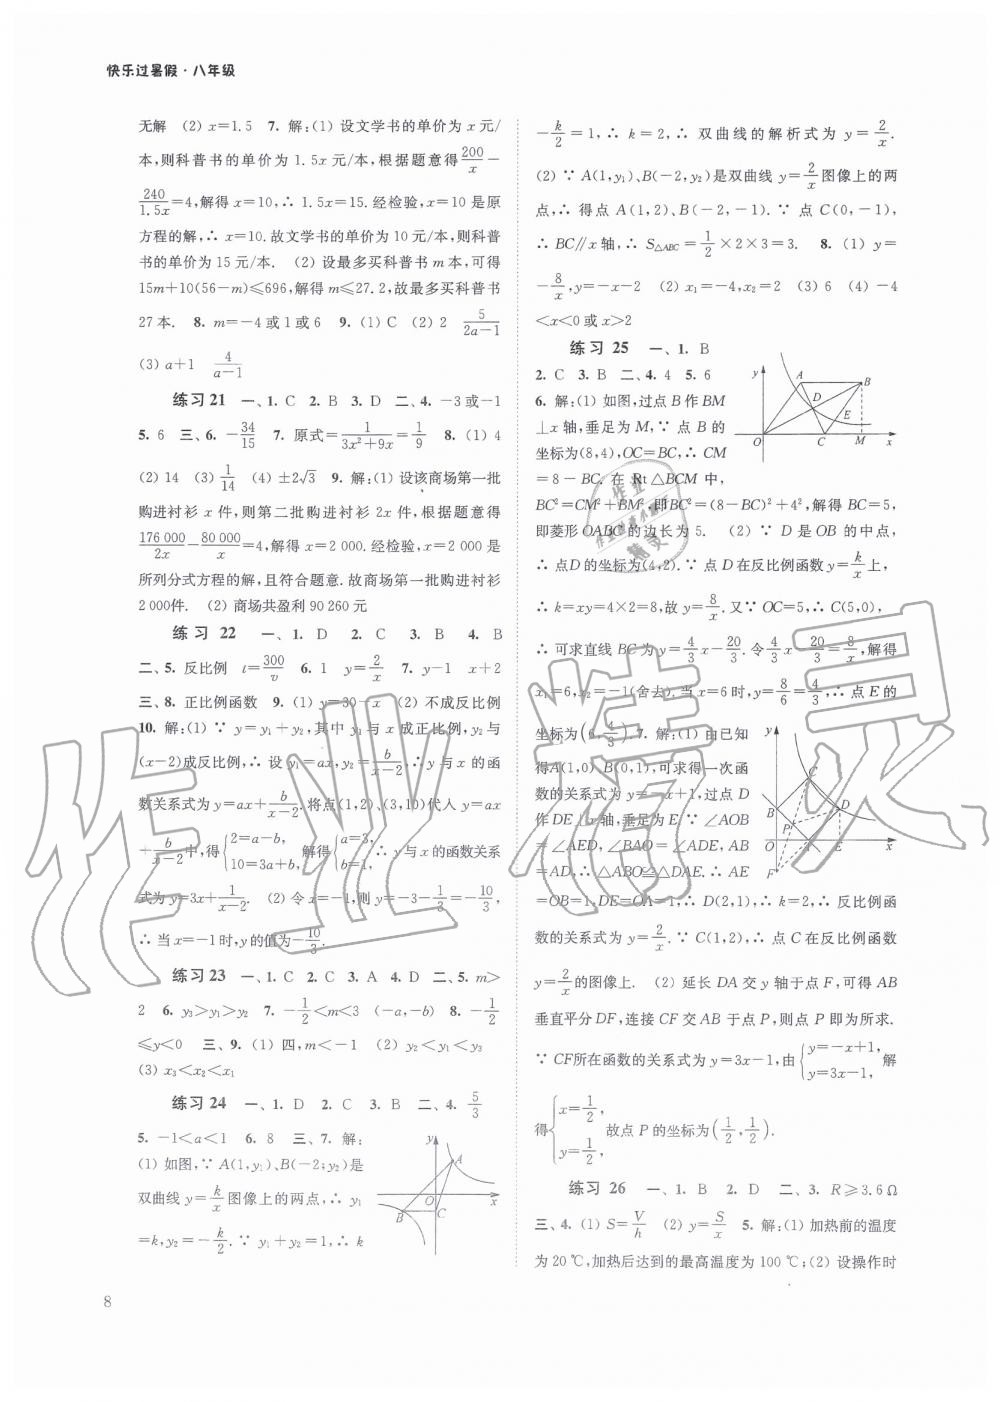 快乐过暑假·八年级
无解 (2) x=1.5 7. 解:(1) 设文学书的单价为 x 元/
本,则科普书的单价为 1.5x 元/本,根据题意得 200/x −
240/1.5x =4,解得 x=10,∴ 1.5x=15. 经检验,x=10 是原
方程的解,∴ x=10.故文学书的单价为 10 元/本,则科普
书的单价为 15 元/本. (2) 设最多买科普书 m 本,可得
15m+10(56−m)≤696,解得 m≤27.2,故最多买科普书
27 本. 8. m=−4 或 1 或 6 9. (1) C (2) 2 5/(2a−1)
(3) a+1 4/(a−1)
练习 21 一、1. C 2. B 3. D 二、4. −3 或−1
5. 6 三、6. −34/15 7. 原式= 1/(3x²+9x) = 1/9 8. (1) 4
(2) 14 (3) 1/14 (4) ±2√3 9. 解:(1) 设该商场第一批
购进衬衫 x 件,则第二批购进衬衫 2x 件,根据题意得
176 000/2x − 80 000/x =4,解得 x=2 000.经检验,x=2 000 是
所列分式方程的解,且符合题意.故商场第一批购进衬衫
2 000件. (2) 商场共盈利 90 260 元
练习 22 一、1. D 2. C 3. B 4. B
二、5. 反比例 t=300/v 6. 1 y=2/x 7. y−1 x+2
三、8. 正比例函数 9. (1) y=30−x (2) 不成反比例
10. 解:(1) ∵ y=y₁+y₂,其中 y₁与 x 成正比例,y₂与
(x−2)成反比例,∴ 设 y₁=ax,y₂= b/(x−2),∴ y 与 x 的函
数关系式为 y=ax+ b/(x−2).将点(1,2)、(3,10)代人 y=ax
+ b/(x−2) 中,得 {2=a−b, 10=3a+b, 解得 {a=3, b=1, ∴ y 与 x 的函数关系
式为 y=3x+ 1/(x−2). (2) 令 x=−1,则 y=−3− 1/3 =− 10/3,
∴ 当 x=−1 时,y 的值为− 10/3.
练习 23 一、1. C 2. C 3. A 4. D 二、5. m>
2 6. y₃>y₁>y₂ 7. −1/2<m<3 (−a,−b) 8. −1/2
≤y<0 三、9. (1) 四,m<−1 (2) y₂<y₁<y₃
(3) x₃<x₂<x₁
练习 24 一、1. D 2. C 3. B 二、4. 5/3
5. −1<a<1 6. 8 三、7. 解:
(1) 如图,∵ A(1,y₁)、B(−2,y₂)是
双曲线 y= k/x 图像上的两点,∴ y₁
=k,y₂=− k/2.∵ y₁+y₂=1,∴ k
y
A
O
x
B
C
8
− k/2 =1,∴ k=2,∴ 双曲线的解析式为 y= 2/x.
(2) ∵ A(1,y₁)、B(−2,y₂)是双曲线 y= 2/x 图像上的两
点,∴ 得点 A(1,2)、B(−2,−1).∵ 点 C(0,−1),
∴ BC∥x 轴,∴ S△ABC= 1/2 ×2×3=3. 8. (1) y=
− 8/x,y=−x−2 (2) x₁=−4,x₂=2 (3) 6 (4) −4
<x<0 或 x>2
练习 25 一、1. B
2. C 3. B 二、4. 4 5. 6
6. 解:(1) 如图,过点 B 作 BM
⊥x 轴,垂足为 M,∵ 点 B 的
坐标为(8,4),OC=BC,∴ CM
=8−BC. 在 Rt△BCM 中,
y
A
B
D
E
O
C
M
x
BC²=CM²+BM²,即BC²=(8−BC)²+4²,解得 BC=5,
即菱形 OABC 的边长为 5. (2) ∵ D 是 OB 的中点,
∴ 点D 的坐标为(4,2).∵ 点 D 在反比例函数 y= k/x 上,
∴ k=xy=4×2=8,故 y= 8/x.又∵ OC=5,∴ C(5,0),
∴ 可求直线 BC 为 y= 4/3 x− 20/3.令 4/3 x− 20/3 = 8/x,解得
x₁=6,x₂=−1(舍去).当 x=6 时,y= 8/6 = 4/3,∴ 点 E 的
坐标为(6, 4/3). 7. 解:(1) 由已知
得A(1,0)、B(0,1),可求得一次函
数的关系式为 y=−x+1,过点 D
作 DE⊥x轴,垂足为 E.∵ ∠AOB
=∠AED,∠BAO=∠ADE,AB
=AD,∴ △ABO≌△DAE.∴ AE
=OB=1,DE=OA=1,∴ D(2,1),∴ k=2,∴ 反比例函
y
C
B
D
P
O
E
x
F
数的关系式为 y= 2/x.∵ C(1,2),∴ 点 C 在反比例函数
y= 2/x 的图像上. (2) 延长 DA 交 y 轴于点 F,可得 AB
垂直平分 DF,连接 CF 交 AB 于点 P,则点 P 即为所求.
∵ CF所在函数的关系式为 y=3x−1,由 {y=−x+1, y=3x−1, 解
得 {x= 1/2, y= 1/2, 故点 P 的坐标为( 1/2, 1/2 ).
练习 26 一、1. B 2. D 二、3. R≥3.6 Ω
三、4. (1) S= V/h (2) y= S/x 5. 解:(1) 加热前的温度
为 20 ℃,加热后达到的最高温度为 100 ℃;(2) 设操作时
作业精灵